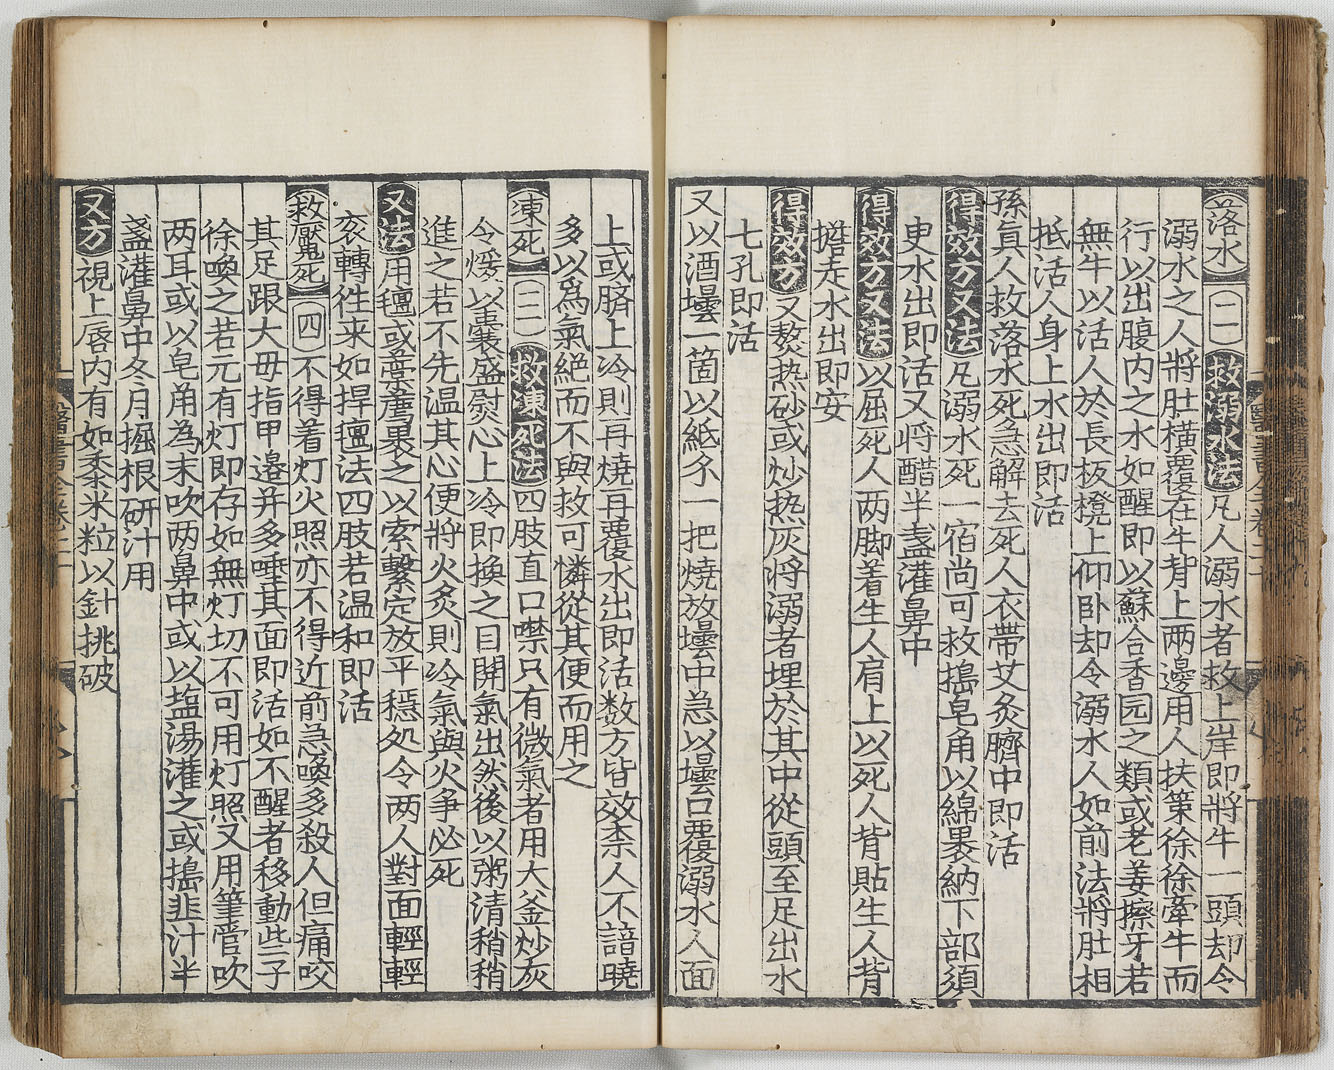 落水 二 救溺水法 凡人溺水者救上岸即將牛一頭却令
溺水之人將肚橫覆在牛背上兩邊用人扶策徐徐牽牛而
行以出腹内之水如醒即以蘇合香园之類或老姜擦牙若
無牛以活人於長板櫈上仰卧却令溺水人如前法將肚相
抵活人身上水出即活
孫眞人救落水死急解去死人衣帶艾灸臍中即活
得效方又法 凡溺水死一宿尚可救搗皂角以綿裹納下部須
臾水出即活又將醋半盞灌鼻中
得效方又法 以屈死人两脚着生人肩上以死人背貼生人背
擔走水出即安
得效方 又熬热砂或炒热灰将溺者埋於其中從頭至足出水
七孔即活
又以酒壜一箇以紙錢一把燒放壜中急以壜口覆溺水人面
上或臍上冷則再燒再覆水出即活数方皆效柰人不諳曉
多以爲氣絕而不與救可憐從其便而用之
凍死 三 救凍死法 四肢直口噤只有微氣者用大釜炒灰
令煖以囊盛熨心上冷即換之目開氣出然後以粥清稍稍
進之若不先温其心便將火炙則冷氣與火争必死
又法 用氊或藁薦裹之以索繫定放平穩処令两人對面輕輕
衮轉往来如捍氊法四肢若温和即活
救魘死 四 不得着灯火照亦不得近前急喚多殺人但痛咬
其足跟大毋指甲邉并多唾其面即活如不醒者移動些子
徐喚之若元有灯即存如無灯切不可用灯照又用筆管吹
两耳或以皂角為末吹两鼻中或以塩湯灌之或搗韭汁半
盞灌鼻中冬月掘根研汁用
又方 視上唇内有如黍米粒以針挑破